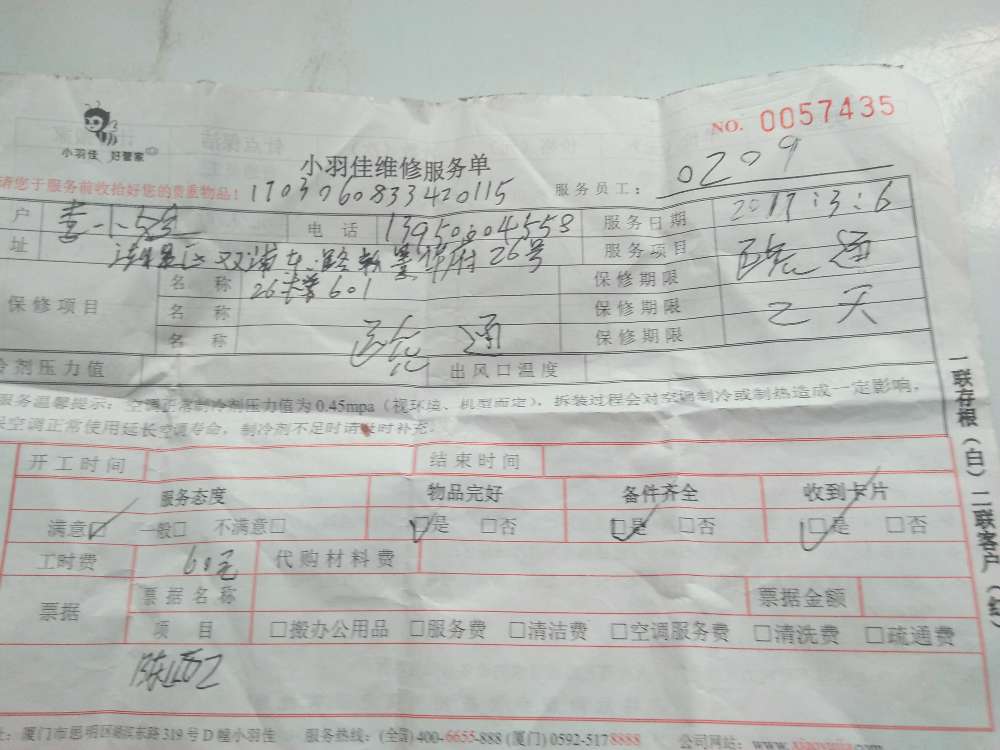 NO. 0057435
小羽佳 好管家
小羽佳维修服务单
服务员工： 0209
请您于服务前收拾好您的贵重物品！ 170306083342 0115
户 电话 服务日期 2017:3:6
址 26号 服务项目 疏通
保修项目 名称 601 保修期限
名称 保修期限
名称 疏通 保修期限 天
冷剂压力值 出风口温度
服务温馨提示：空调正常制冷剂压力值为 0.45mpa（视环境、机型而定），拆装过程会对空调制冷或制热造成一定影响，
保空调正常使用延长空调寿命，制冷剂不足时请及时补充．
开工时间 结束时间
服务态度 物品完好 备件齐全 收到卡片
满意□ 一般□ 不满意□ □是 □否 □是 □否 □是 □否
工时费 60元 代购材料费
票据 票据名称 票据金额
项目 □搬办公用品 □服务费 □清洁费 □空调服务费 □清洗费 □疏通费
厦门市思明区 东路319号D幢小羽佳 服务热线：(全国) 400-6655-888 (厦门) 0592-5178888 公司网址：
一联存根（白）二联客户